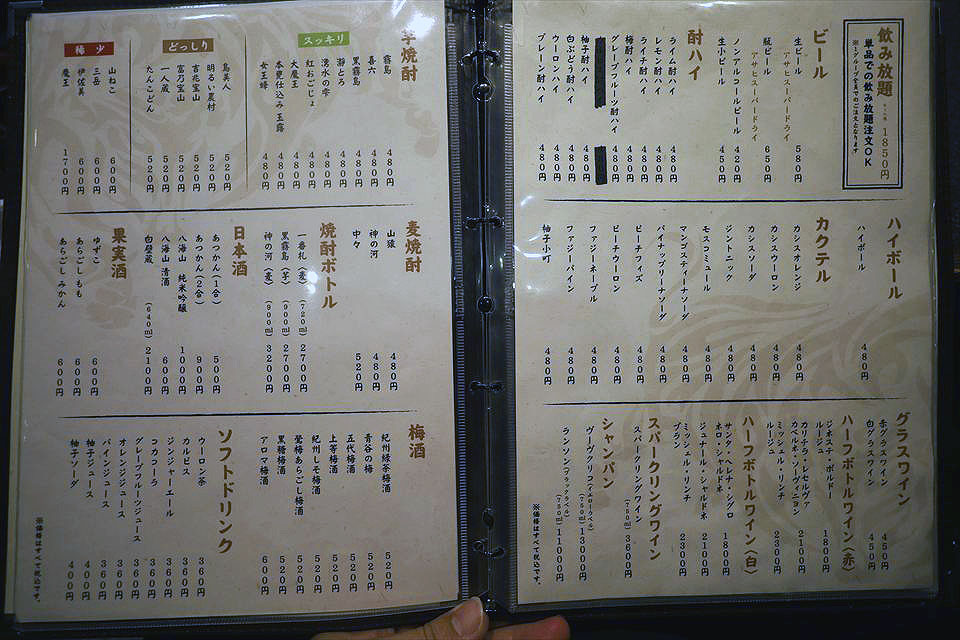 飲み放題
1850円
単品での飲み放題注文OK
※1グループ全員でのご注文となります
ビール
生ビール 580円
アサヒスーパードライ
瓶ビール 650円
アサヒスーパードライ
ノンアルコールビール 420円
生小ビール 450円
酎ハイ
ライム酎ハイ 480円
レモン酎ハイ 480円
ライチ酎ハイ 480円
梅酎ハイ 480円
グレープフルーツ酎ハイ 480円
柚子酎ハイ 480円
白ぶどう酎ハイ 480円
ウーロンハイ 480円
プレーン酎ハイ 480円
ハイボール
ハイボール 480円
カクテル
カシスオレンジ 480円
カシスウーロン 480円
カシスソーダ 480円
ジントニック 480円
モスコミュール 480円
マンゴスティーナソーダ 480円
パイナップリーナソーダ 480円
ピーチフィズ 480円
ピーチウーロン 480円
ファジーネーブル 480円
ファジーパイン 480円
柚子小町 480円
グラスワイン
赤グラスワイン 450円
白グラスワイン 450円
ハーフボトルワイン(赤)
ジネステ・ボルドー
ルージュ 1800円
カリテラ・レセルヴァ
カベルネ・ソーヴィニヨン 2100円
ミッシェル・リンチ
ルージュ 2300円
ハーフボトルワイン(白)
サンタ・レナ・シグロ
ネロ・シャルドネ 1800円
ジュナール・シャルドネ 2100円
ミッシェル・リンチ
ブラン 2300円
スパークリングワイン
スパークリングワイン (750ml) 3600円
シャンパン
ヴーヴクリコ(イエローラベル) (750ml) 13000円
ランソン(ブラックラベル) (750ml) 11000円
※価格はすべて税込です。
芋焼酎
スッキリ
霧島 480円
喜六 480円
黒霧島 480円
瀞とろ 480円
湧水の雫 480円
紅おごじょ 480円
大魔王 480円
本甕仕込み 玉露 480円
女王蜂 480円
どっしり
島美人 520円
明るい農村 520円
吉兆宝山 520円
富乃宝山 520円
一人蔵 520円
たんこどん 520円
稀少
山ねこ 600円
三岳 600円
伊佐美 600円
魔王 1700円
麦焼酎
山猿 480円
神の河 480円
中々 520円
焼酎ボトル
一番札(麦) (720ml) 2700円
黒霧島(芋) (900ml) 2700円
神の河(麦) (900ml) 3200円
日本酒
あつかん(1合) 500円
あつかん(2合) 900円
八海山 純米吟醸 1000円
八海山 清酒 600円
白壁蔵 (640ml) 2100円
果実酒
ゆずこ 600円
あらごしもも 600円
あらごしみかん 600円
梅酒
紀州緑茶梅酒 520円
青谷の梅 520円
五代梅酒 520円
上等梅酒 520円
紀州しそ梅酒 520円
鶯梅あらごし梅酒 520円
黒糖梅酒 520円
アロマ梅酒 600円
ソフトドリンク
ウーロン茶 360円
カルピス 360円
ジンジャーエール 360円
コカコーラ 360円
グレープフルーツジュース 360円
オレンジジュース 360円
パインジュース 360円
柚子ジュース 400円
柚子ソーダ 400円
※価格はすべて税込です。